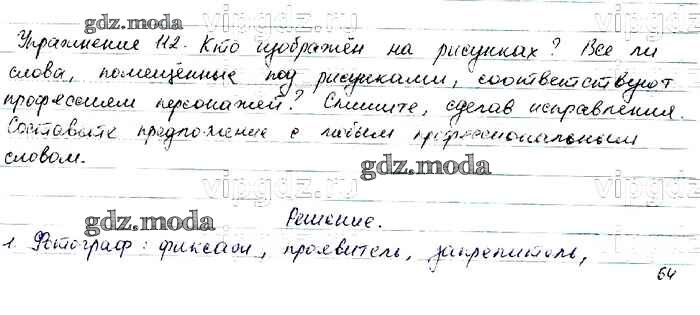 gdz.moda
vipgdz.ru
Упражнение 112. Кто изображён на рисунках? Все ли
слова, помещённые под рисунками, соответствуют
профессиям персонажей? Спишите, сделав исправления.
Составьте предложение с любым профессиональным
словом.
gdz.moda
vipgdz.ru
gdz.moda
Решение.
1. Фотограф: фиксаж, проявитель, закрепитель,
64